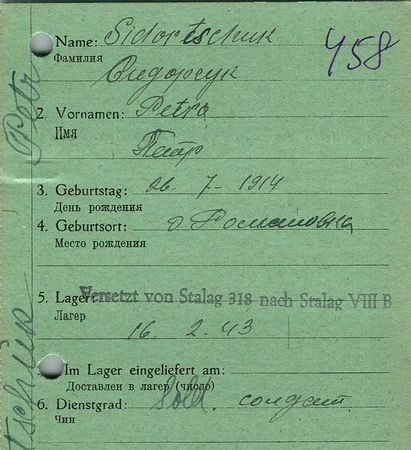 Name: Sidortschuk
Фамилия
458
Сидорчук
2. Vornamen: Petro
Имя
Петр
3. Geburtstag: 26. 7. 1914
День рождения
4. Geburtsort: д. Романовка
Место рождения
5. Lager: Versetzt von Stalag 318 nach Stalag VIII B
Лагер
16. 2. 43
Im Lager eingeliefert am:
Доставлен в лагер (число)
6. Dienstgrad: Sold. солдат
Чин
Petr
tschuk